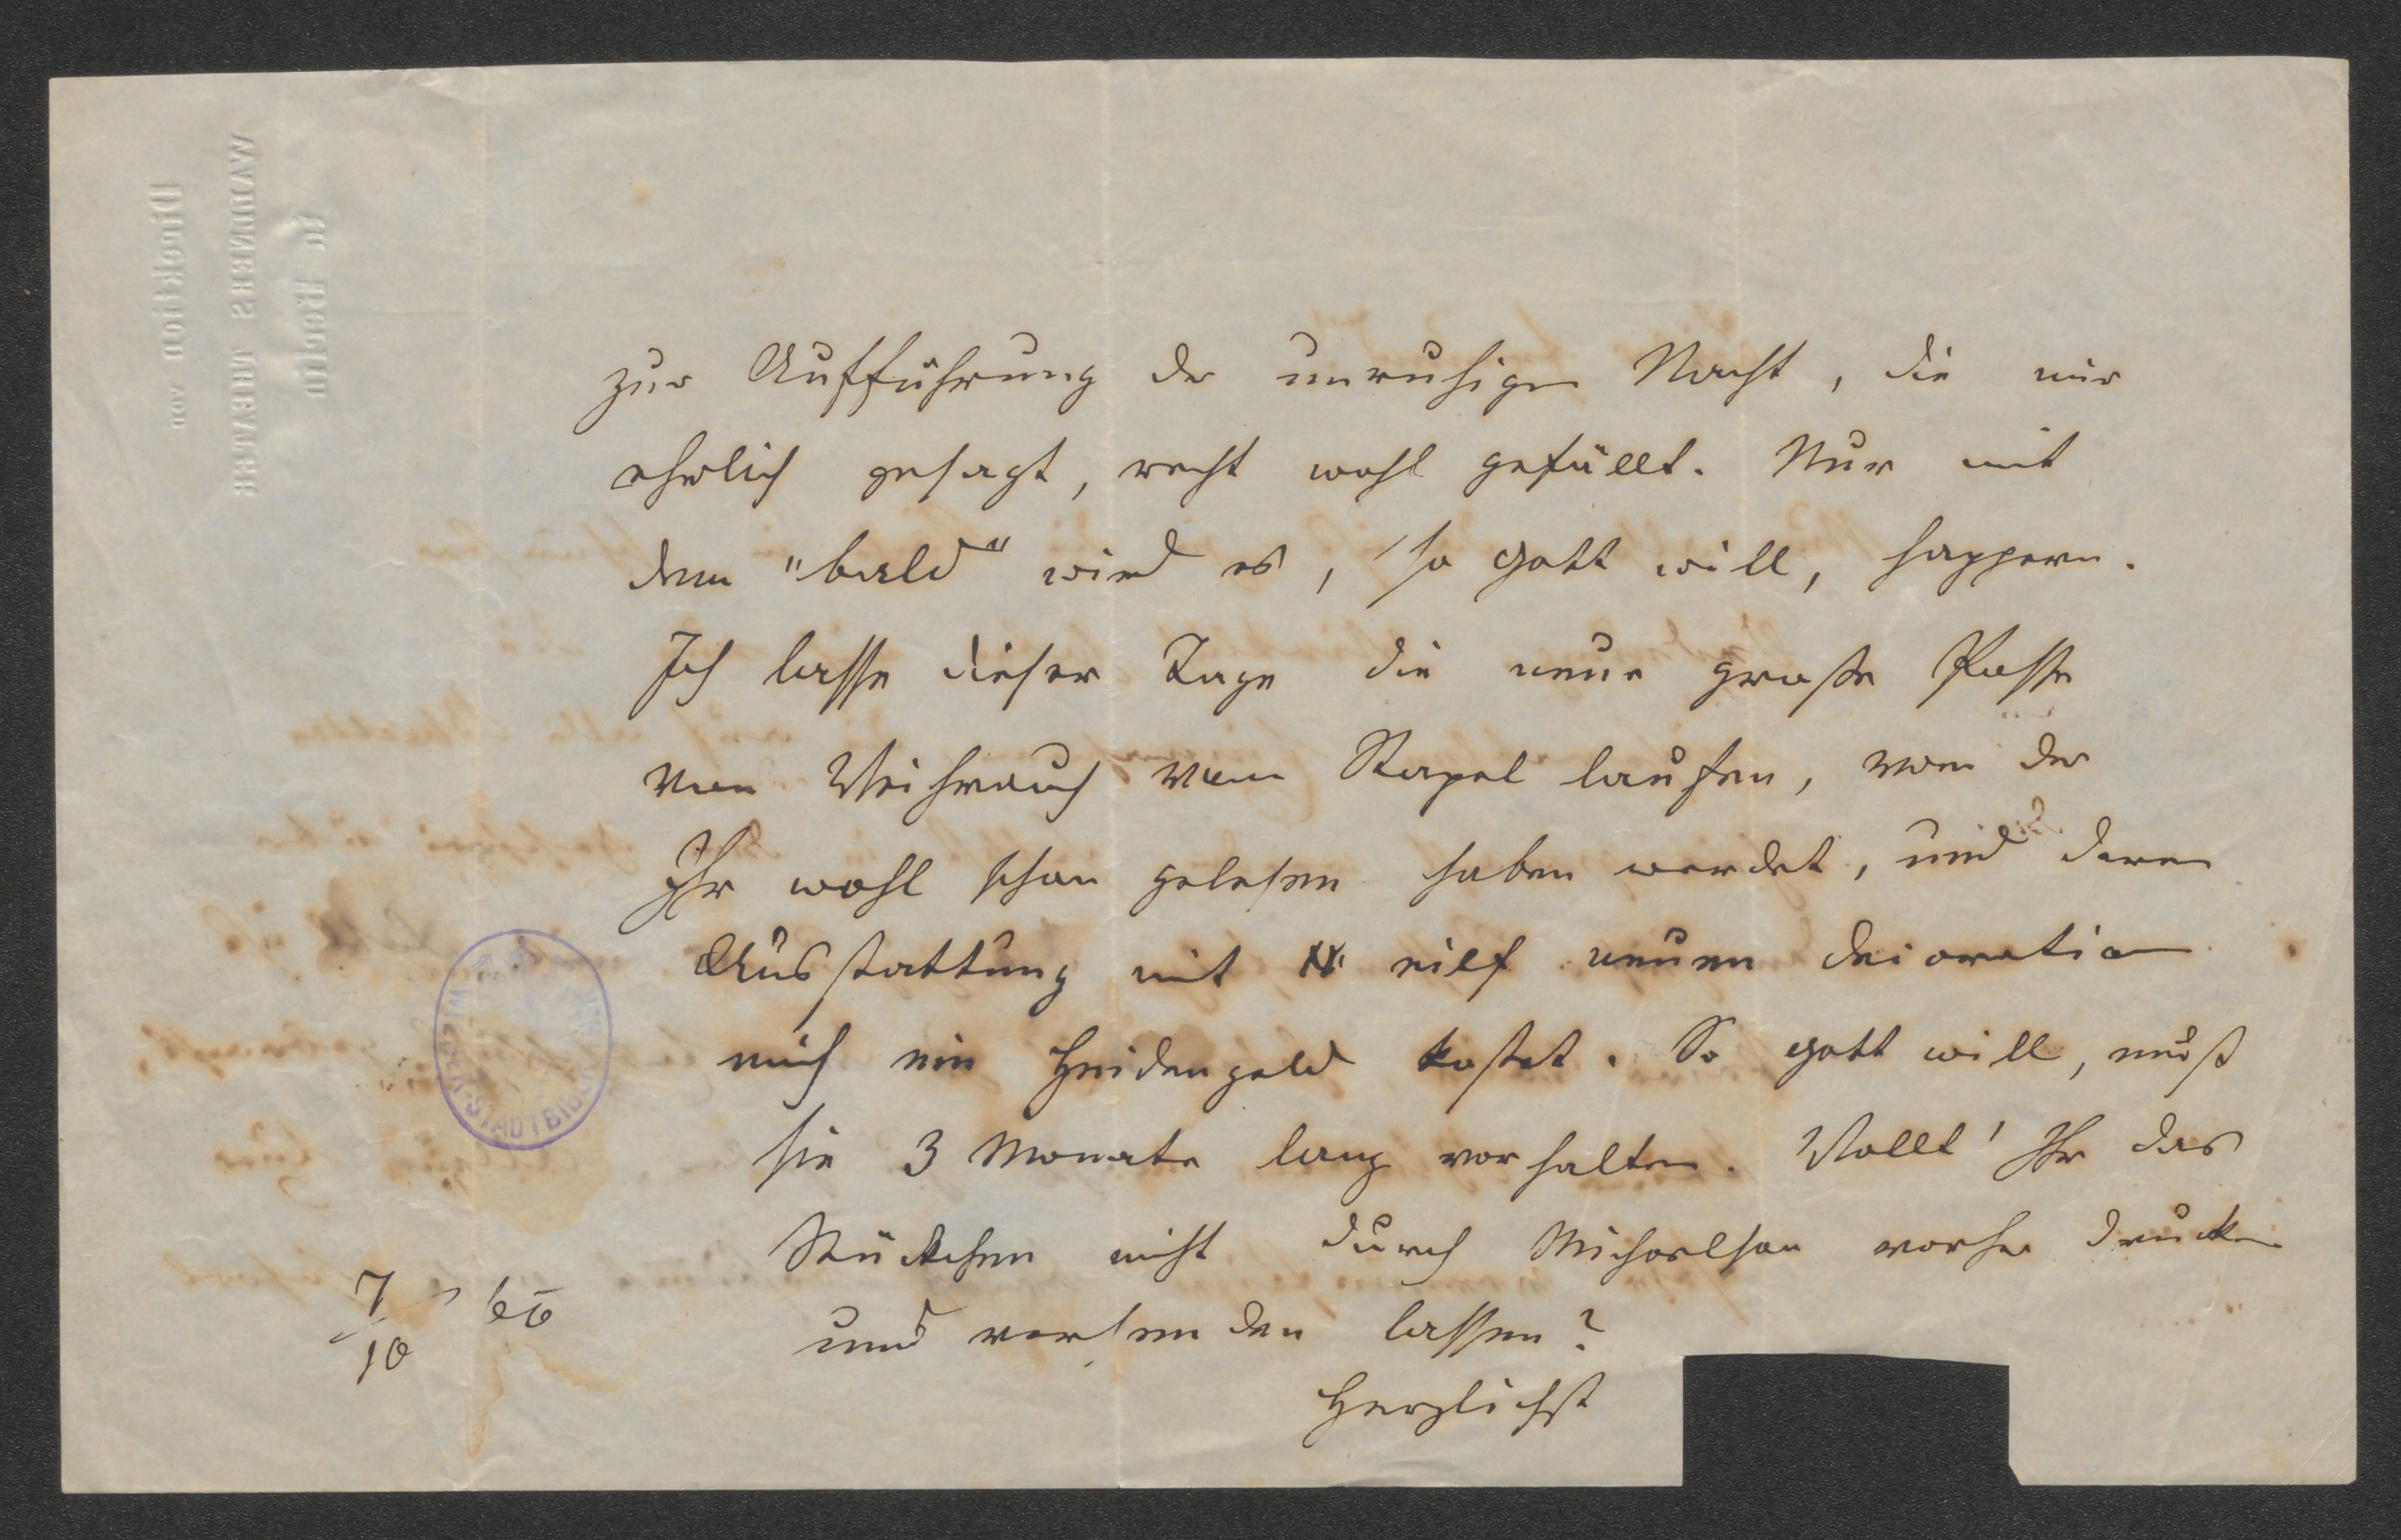 Direktion
von
WALLNER'S THEATER
in Berlin
zur Aufführung der unruhigen Nacht, die mir
ehrlich gesagt, recht wohl gefällt. Nur mit
dem "bald" wird es, so Gott will, happern.
Ich lasse dieser Tage die neue große Posse
von Weihrauch vom Stapel laufen, von der
Ihr wohl schon gelesen haben werdet, und deren
Ausstattung mit eilf neuen Decoration
mich ein Heidengeld kostet. So Gott will, muß
sie 3 Monate lang vorhalten. Wollt' Ihr das
Stückchen nicht durch Michaelson vorher drucken
und versenden lassen?
Herzlichst
7/10 66
WIENER-STADTBIBL